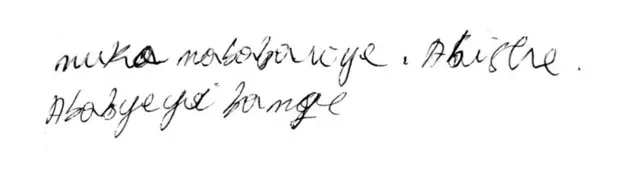 muka nababariye. Abishe.
Ababyeyi bange